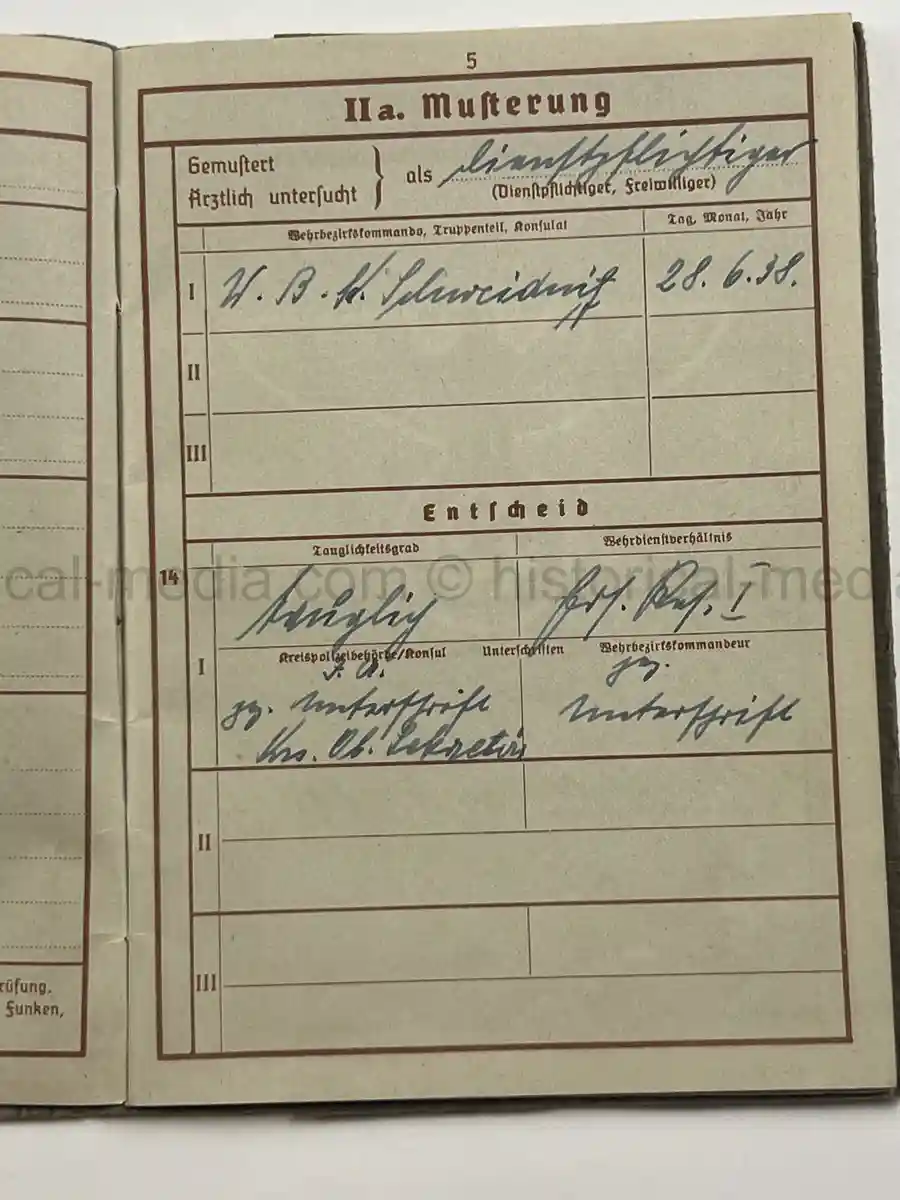 5
IIa. Musterung
Gemustert
Ärztlich untersucht } als Dienstpflichtiger
(Dienstpflichtiger, Freiwilliger)
Wehrbezirkskommando, Truppenteil, Konsulat Tag, Monat, Jahr
I W. B. K. Schweidnitz 28. 6. 38.
II
III
Entscheid
14
Tauglichkeitsgrad Wehrdienstverhältnis
cal-media.com © historical-media
tauglich Ers. Res. I
I
Kreispolizeibehörde/Konsul Unterschriften Wehrbezirkskommandeur
J. A. gez.
gez. Unterschrift Unterschrift
Krs. Ob. Sekretär
II
III
rüfung.
Funken,